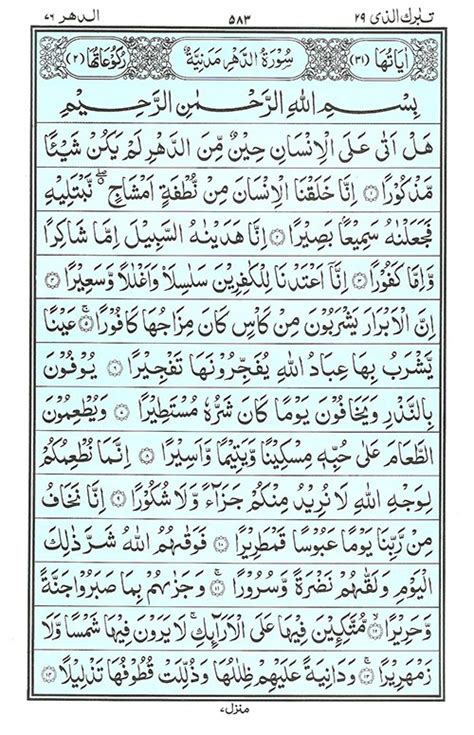 تبٰرك الذی ۲۹ ۵۸۳ الدهر ۷۶
اٰیاتها (۳۱) سُوْرَةُ الدَّهْرِ مَدَنِيَّةٌ رُكُوْعَاتُها (۲)
بِسْمِ اللهِ الرَّحْمٰنِ الرَّحِيْمِ
هَلْ اَتٰى عَلَى الْاِنْسَانِ حِيْنٌ مِّنَ الدَّهْرِ لَمْ يَكُنْ شَيْئًا
مَّذْكُوْرًا ۝۱ اِنَّا خَلَقْنَا الْاِنْسَانَ مِنْ نُّطْفَةٍ اَمْشَاجٍ ۖ نَّبْتَلِيْهِ
فَجَعَلْنٰهُ سَمِيْعًۢا بَصِيْرًا ۝۲ اِنَّا هَدَيْنٰهُ السَّبِيْلَ اِمَّا شَاكِرًا
وَّاِمَّا كَفُوْرًا ۝۳ اِنَّاۤ اَعْتَدْنَا لِلْكٰفِرِيْنَ سَلٰسِلَا۟ وَاَغْلٰلًا وَّسَعِيْرًا ۝۴
اِنَّ الْاَبْرَارَ يَشْرَبُوْنَ مِنْ كَاْسٍ كَانَ مِزَاجُهَا كَافُوْرًا ۝۵ عَيْنًا
يَّشْرَبُ بِهَا عِبَادُ اللهِ يُفَجِّرُوْنَهَا تَفْجِيْرًا ۝۶ يُوْفُوْنَ
بِالنَّذْرِ وَيَخَافُوْنَ يَوْمًا كَانَ شَرُّهٗ مُسْتَطِيْرًا ۝۷ وَيُطْعِمُوْنَ
الطَّعَامَ عَلٰى حُبِّهٖ مِسْكِيْنًا وَّيَتِيْمًا وَّاَسِيْرًا ۝۸ اِنَّمَا نُطْعِمُكُمْ
لِوَجْهِ اللهِ لَا نُرِيْدُ مِنْكُمْ جَزَآءً وَّلَا شُكُوْرًا ۝۹ اِنَّا نَخَافُ
مِنْ رَّبِّنَا يَوْمًا عَبُوْسًا قَمْطَرِيْرًا ۝۱۰ فَوَقٰىهُمُ اللهُ شَرَّ ذٰلِكَ
الْيَوْمِ وَلَقّٰىهُمْ نَضْرَةً وَّسُرُوْرًا ۝۱۱ وَجَزٰىهُمْ بِمَا صَبَرُوْا جَنَّةً
وَّحَرِيْرًا ۝۱۲ مُّتَّكِـِٕيْنَ فِيْهَا عَلَى الْاَرَآئِكِ ۚ لَا يَرَوْنَ فِيْهَا شَمْسًا وَّلَا
زَمْهَرِيْرًا ۝۱۳ وَدَانِيَةً عَلَيْهِمْ ظِلٰلُهَا وَذُلِّلَتْ قُطُوْفُهَا تَذْلِيْلًا ۝۱۴
منزل ۷